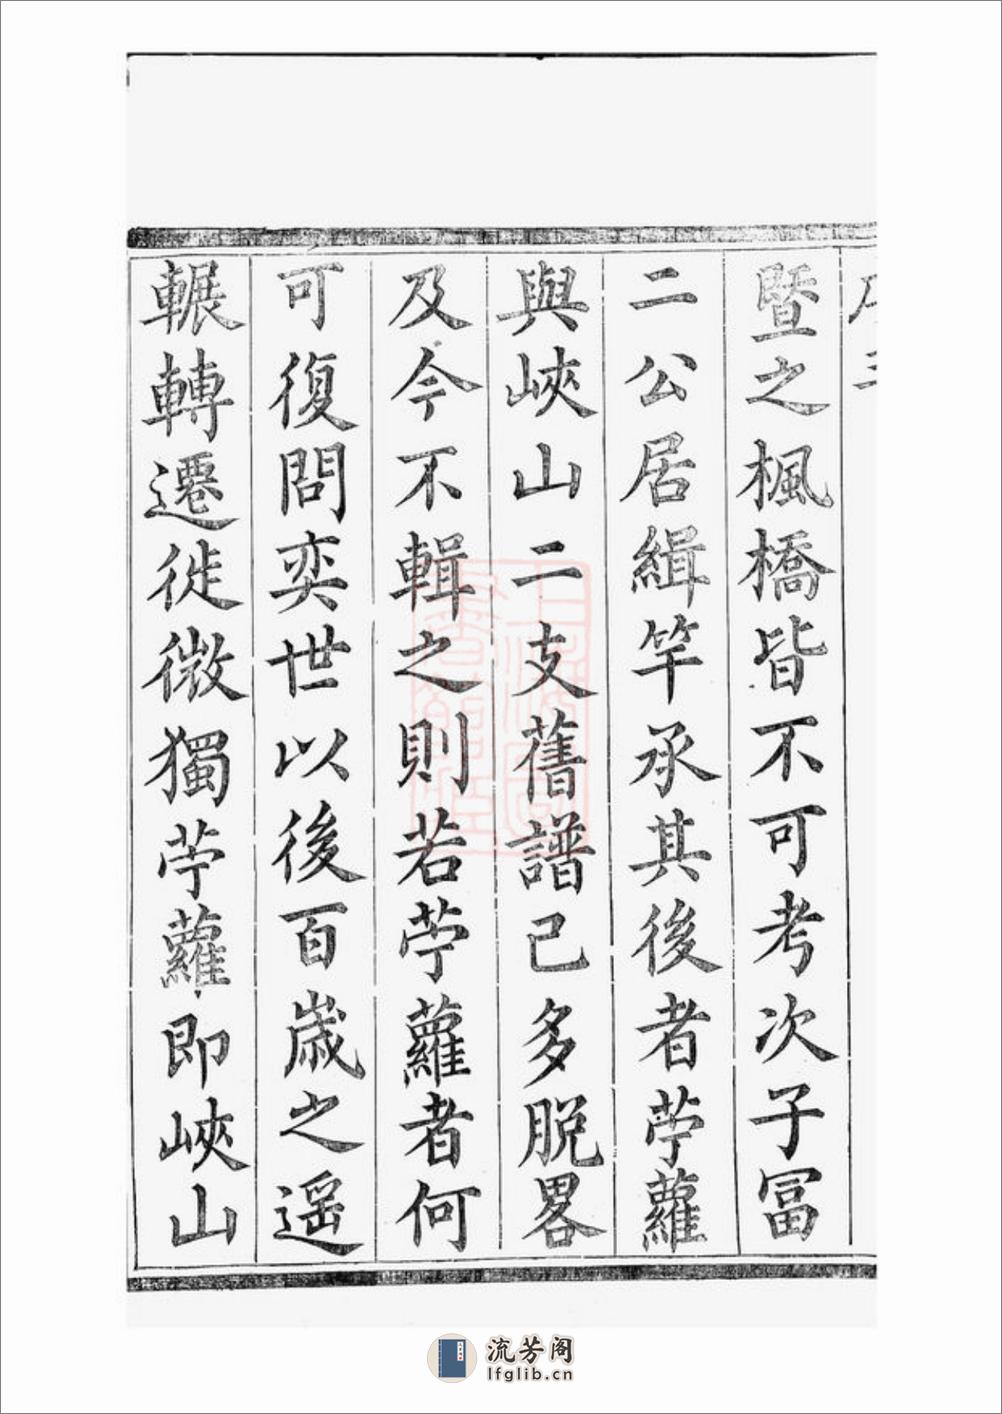 暨之楓橋皆不可考次子冨
二公居緝竿承其後者苧蘿
與峽山二支舊譜已多脱畧
及今不輯之則若苧蘿者何
可復問奕世以後百歲之遥
輾轉遷徙微獨苧蘿即峽山
流芳阁
lfglib.cn